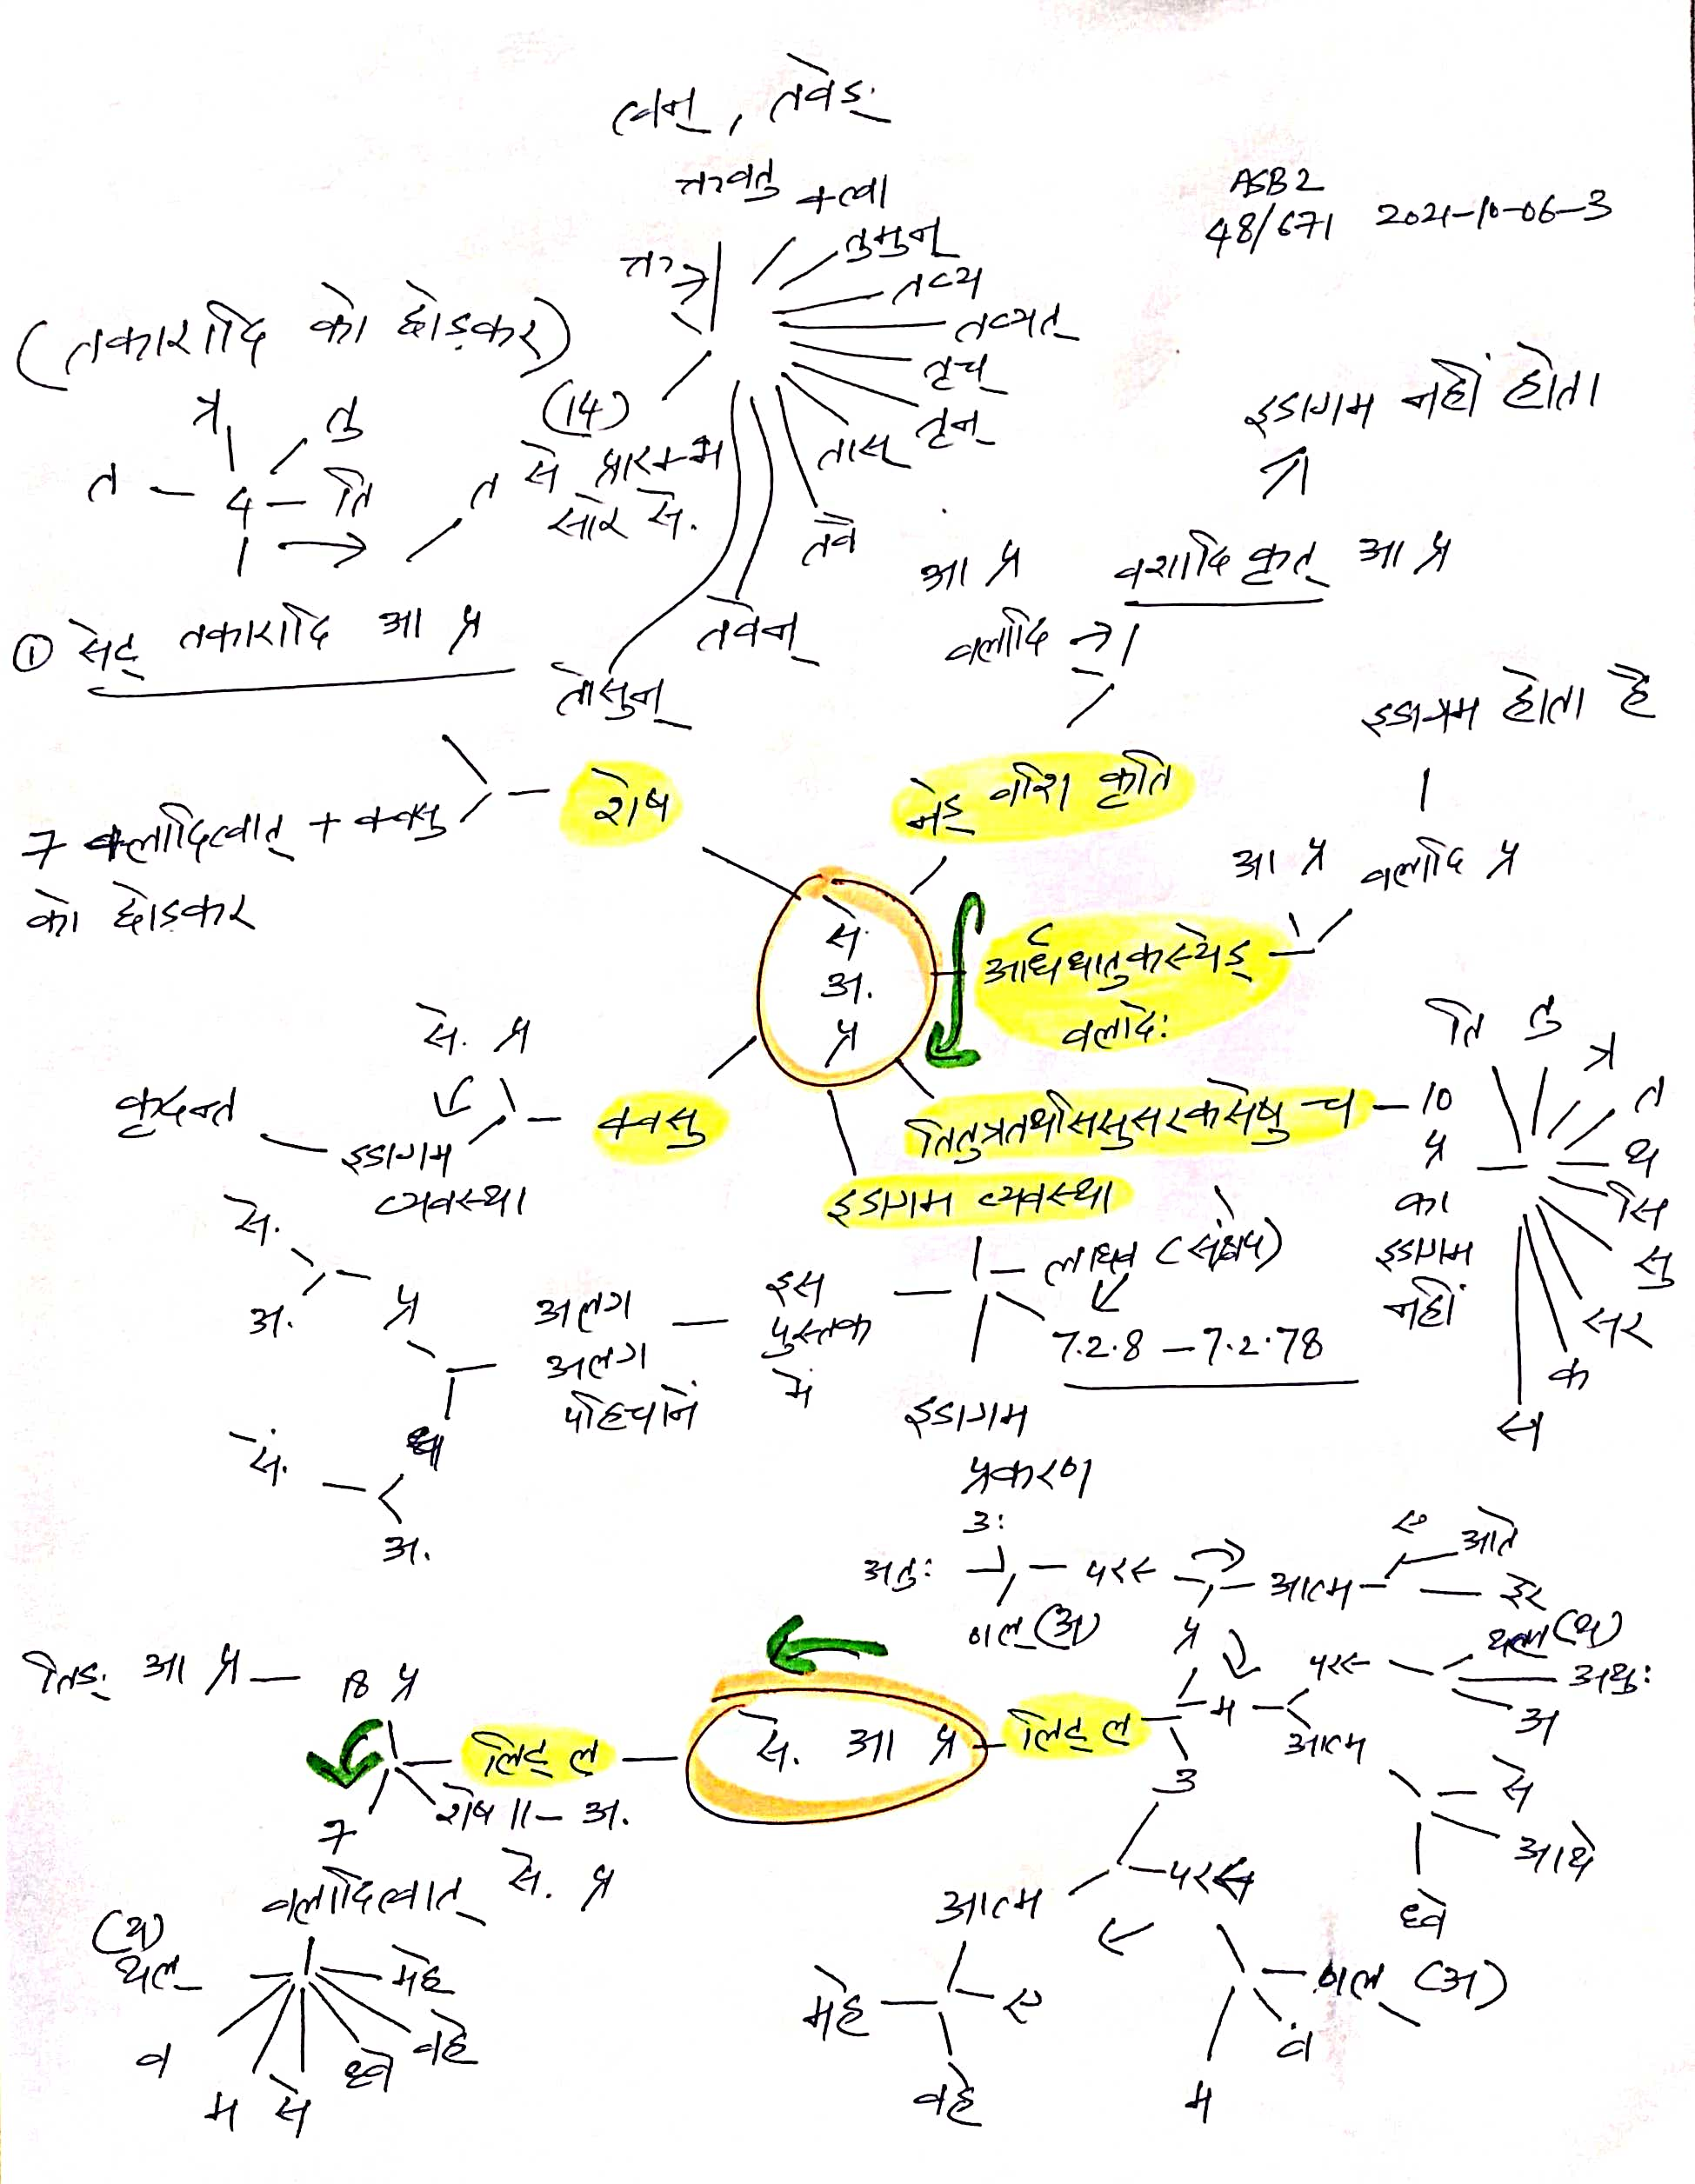 त्वन् , तवेङ्
क्तवतु क्त्वा
क्त तुमुन्
तव्य
तव्यत्
तृच्
तृन्
तास्
तवे
तवेन्
तोसुन्
ASB2
48/671 2021-10-06-3
(तकारादि को छोड़कर)
त्र तु
त – 4 – ति
(14)
त से प्रारम्भ
सारे से.
① सेट् तकारादि आ प्र
इडागम नहीं होता
आ प्र वशादि कृत् आ प्र
वलादि
इडागम होता है
आ प्र वलादि प्र
शेष
7 वलादित्वात् + क्वसु
को छोड़कर
नेड् वशि कृति
से.
अ.
प्र
आर्धधातुकस्येड्
वलादेः
तितुत्रतथसिसुसरकसेषु च – 10
प्र
का
इडागम
नहीं
ति तु त्र त थ सि सु सर क स
क्वसु
से. प्र
कृदन्त
इडागम
व्यवस्था
इडागम व्यवस्था
लाघव (संक्षेप)
7.2.8 – 7.2.78
इडागम
प्रकरण
इस
पुस्तक
में
अलग
अलग
पहिचाने
से.
अ. प्र
धा
से.
अ.
उः
अतुः – परस्
णल् (अ)
प्र
आत्म
ए आते
इरे
म
परस्
थल् (थ)
अथुः
अ
आत्म
से
आथे
ध्वे
तिङ् आ प्र – 18 प्र
लिट् ल
से. आ प्र
लिट् ल
शेष 11 – अ.
7
वलादित्वात् से. प्र
(थ)
थल्
व
म से ध्वे वहे महे
उ
आत्म
परस्
महे ए
वहे
णल् (अ)
व
म